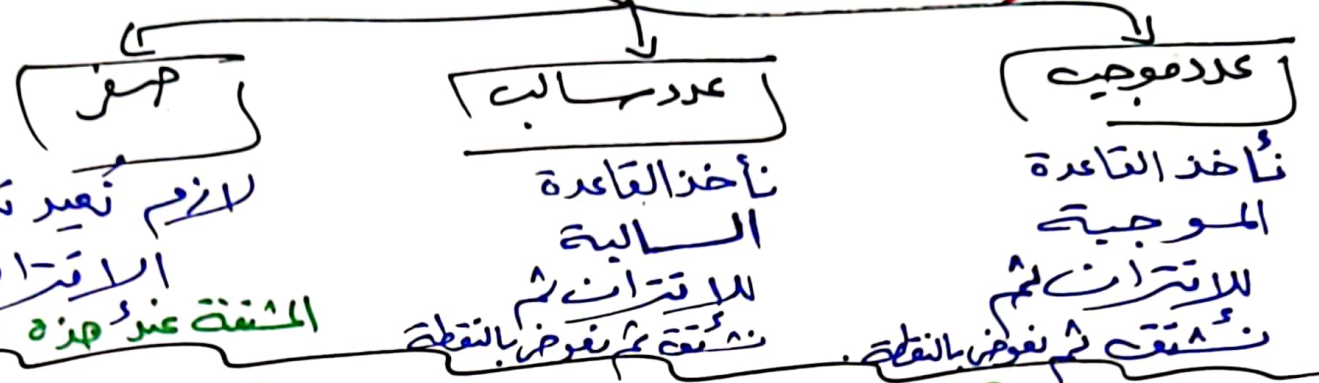 عدد موجب
نأخذ القاعدة
الموجبة
للاقتران ثم
نشتقه ثم نعوض بالنقطة.
عدد سالب
نأخذ القاعدة
السالبة
للاقتران ثم
نشتقه ثم نعوض بالنقطة
صفر
لازم نعيد
المشتقة عند هذه